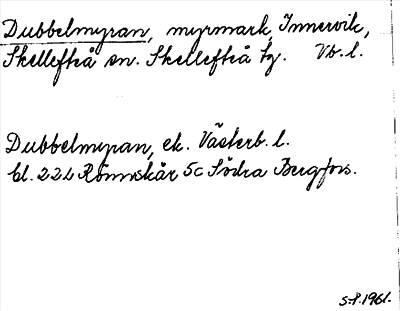 Dubbelmyran, myrmark, Innervik,
Skellefteå sn. Skellefteå tg. Vb. l.
Dubbelmyran, ek. Västerb. l.
bl. 22L Rönnskär 5c Södra Bergfors.
1961.